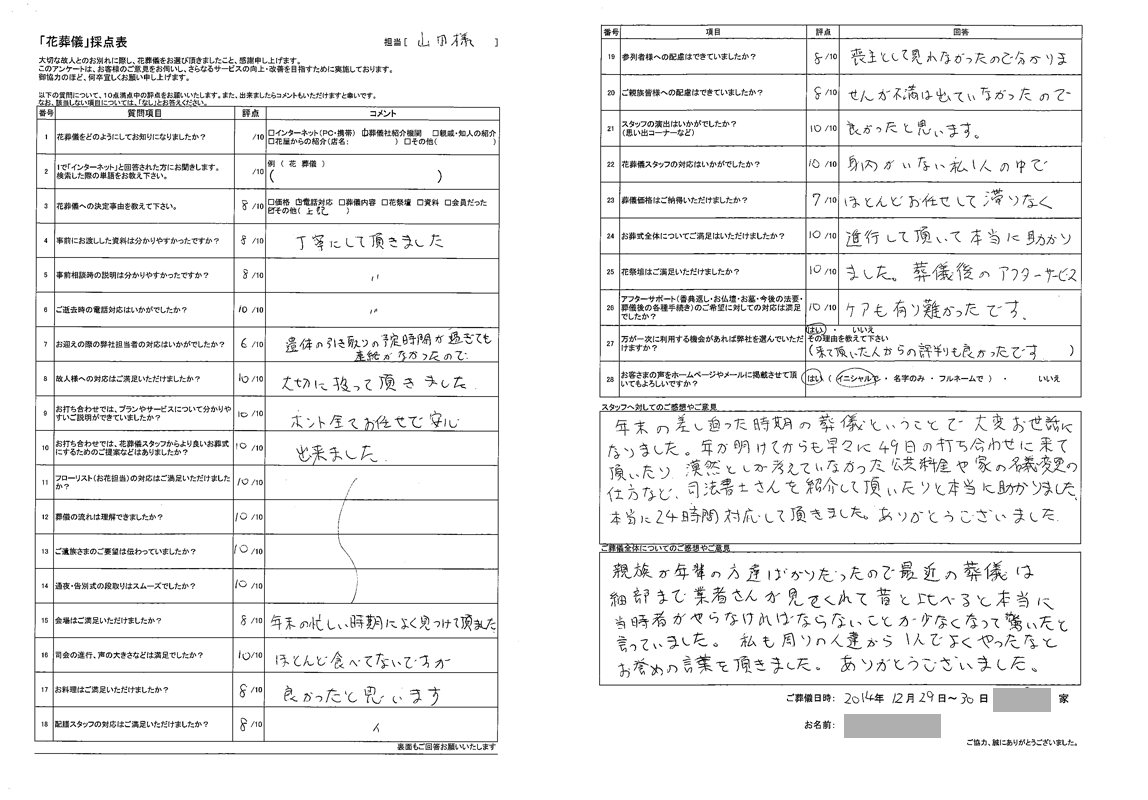 「花葬儀」採点表
担当 [ 山田様 ]
大切な故人とのお別れに際し、花葬儀をお選び頂きましたこと、感謝申し上げます。
このアンケートは、お客様のご意見をお伺いし、さらなるサービスの向上・改善を目指すために実施しております。
御協力のほど、何卒宜しくお願い申し上げます。
以下の質問について、10点満点中の評点をお願いいたします。また、出来ましたらコメントもいただけますと幸いです。
なお、該当しない項目については、「なし」とお答えください。
番号 質問項目 評点 コメント
1 花葬儀をどのようにしてお知りになりましたか? /10 □インターネット(PC・携帯) □葬儀社紹介機関 □親戚・知人の紹介
□花屋からの紹介(店名: ) □その他( )
2 1で「インターネット」と回答された方にお聞きします。
検索した際の単語をお教え下さい。 /10 例 ( 花 葬儀 )
( )
3 花葬儀への決定事由を教えて下さい。 8 /10 □価格 ☑電話対応 □葬儀内容 □花祭壇 □資料 □会員だった
☑その他( 上記 )
4 事前にお渡しした資料は分かりやすかったですか? 8 /10 丁寧にして頂きました
5 事前相談時の説明は分かりやすかったですか? 8 /10 〃
6 ご逝去時の電話対応はいかがでしたか? 10 /10 〃
7 お迎えの際の弊社担当者の対応はいかがでしたか? 6 /10 遺体の引き取りの予定時間が過ぎても
連絡がなかったので
8 故人様への対応はご満足いただけましたか? 10 /10 大切に扱って頂きました.
9 お打ち合わせでは、プランやサービスについて分かりや
すいご説明ができていましたか? 10 /10 ホント全てお任せで安心
10 お打ち合わせでは、花葬儀スタッフからより良いお葬式
にするためのご提案などはありましたか? 10 /10 出来ました.
11 フローリスト(お花担当)の対応はご満足いただけました
か? 10 /10
12 葬儀の流れは理解できましたか? 10 /10
13 ご遺族さまのご要望は伝わっていましたか? 10 /10
14 通夜・告別式の段取りはスムーズでしたか? 10 /10
15 会場はご満足いただけましたか? 8 /10 年末の忙しい時期によく見つけて頂ました
16 司会の進行、声の大きさなどは満足でしたか? 10 /10 ほとんど食べてないですが
17 お料理はご満足いただけましたか? 8 /10 良かったと思います
18 配膳スタッフの対応はご満足いただけましたか? 8 /10
裏面もご回答お願いいたします
番号 項目 評点 回答
19 参列者様への配慮はできていましたか? 8 /10 喪主として思れなかったので分かりま
20 ご親族皆様への配慮はできていましたか? 8 /10 せんが不満は出ていなかったので
21 スタッフの演出はいかがでしたか?
(思い出コーナーなど) 10 /10 良かったと思います。
22 花葬儀スタッフの対応はいかがでしたか? 10 /10 身内がいない私1人の中で
23 葬儀価格はご納得いただけましたか? 7 /10 ほとんどお任せして滞りなく
24 お葬式全体についてご満足はいただけましたか? 10 /10 進行して頂いて本当に助かり
25 花祭壇はご満足いただけましたか? 10 /10 ました。葬儀後のアフターサービス
26 アフターサポート(香典返し・お仏壇・お墓・今後の法要・
葬儀後の各種手続き)のご希望に対しての対応は満足
でしたか? 10 /10 ケアも有り難かったです.
27 万が一次に利用する機会があれば弊社を選んでいただ
けますか? はい ・ いいえ
その理由を教えて下さい
(来て頂いた人からの評判も良かったです )
28 お客さまの声をホームページやメールに掲載させて頂
いてもよろしいですか? はい ( イニシャルで ・ 名字のみ ・ フルネームで ) ・ いいえ
スタッフへ対してのご感想やご意見
年末の差し迫った時期の葬儀ということで大変お世話に
なりました。年が明けてからも早々に49日の打ち合わせに来て
頂いたり 漠然としか考えていなかった公共料金や家の名義変更の
仕方など、司法書士さんを紹介して頂いたりと本当に助かりました.
本当に24時間対応して頂きました。ありがとうございました.
ご葬儀全体についてのご感想やご意見
親族が年輩の方達ばかりだったので最近の葬儀は
細部まで業者さんが見てくれて昔と比べると本当に
当時者がやらなければならないことが少なくなって驚いたと
言っていました。私も周りの人達から1人でよくやったなと
お誉めの言葉を頂きました。ありがとうございました。
ご葬儀日時: 2014年 12月29日~30日 家
お名前:
ご協力、誠にありがとうございました。